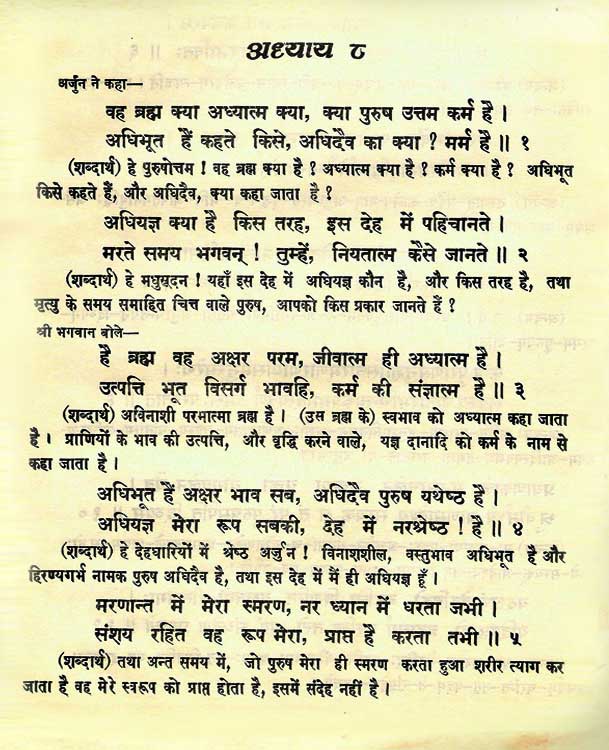 अध्याय ८
अर्जुन ने कहा—
वह ब्रह्म क्या अध्यात्म क्या, क्या पुरुष उत्तम कर्म है ।
अधिभूत हैं कहते किसे, अधिदैव का क्या ? मर्म है ॥ १
(शब्दार्थ) हे पुरुषोत्तम ! वह ब्रह्म क्या है ? अध्यात्म क्या है ? कर्म क्या है ? अधिभूत
किसे कहते हैं, और अधिदैव, क्या कहा जाता है ?
अधियज्ञ क्या है किस तरह, इस देह में पहिचानते ।
मरते समय भगवन् ! तुम्हें, नियतात्म कैसे जानते ॥ २
(शब्दार्थ) हे मधुसूदन ! यहाँ इस देह में अधियज्ञ कौन है, और किस तरह है, तथा
मृत्यु के समय समाहित चित्त वाले पुरुष, आपको किस प्रकार जानते हैं ?
श्री भगवान बोले—
है ब्रह्म वह अक्षर परम, जीवात्म ही अध्यात्म है ।
उत्पत्ति भूत विसर्ग भावहि, कर्म की संज्ञात्म है ॥ ३
(शब्दार्थ) अविनाशी परमात्मा ब्रह्म है । (उस ब्रह्म के) स्वभाव को अध्यात्म कहा जाता
है । प्राणियों के भाव की उत्पत्ति, और वृद्धि करने वाले, यज्ञ दानादि को कर्म के नाम से
कहा जाता है ।
अधिभूत हैं अक्षर भाव सब, अधिदैव पुरुष यथेष्ठ है ।
अधियज्ञ मेरा रूप सबकी, देह में नरश्रेष्ठ ! है ॥ ४
(शब्दार्थ) हे देहधारियों में श्रेष्ठ अर्जुन ! विनाशशील, वस्तुभाव अधिभूत है और
हिरण्यगर्भ नामक पुरुष अधिदैव है, तथा इस देह में मैं ही अधियज्ञ हूँ ।
मरणान्त में मेरा स्मरण, नर ध्यान में धरता जभी ।
संशय रहित वह रूप मेरा, प्राप्त है करता तभी ॥ ५
(शब्दार्थ) तथा अन्त समय में, जो पुरुष मेरा ही स्मरण करता हुआ शरीर त्याग कर
जाता है वह मेरे स्वरूप को प्राप्त होता है, इसमें संदेह नहीं है ।